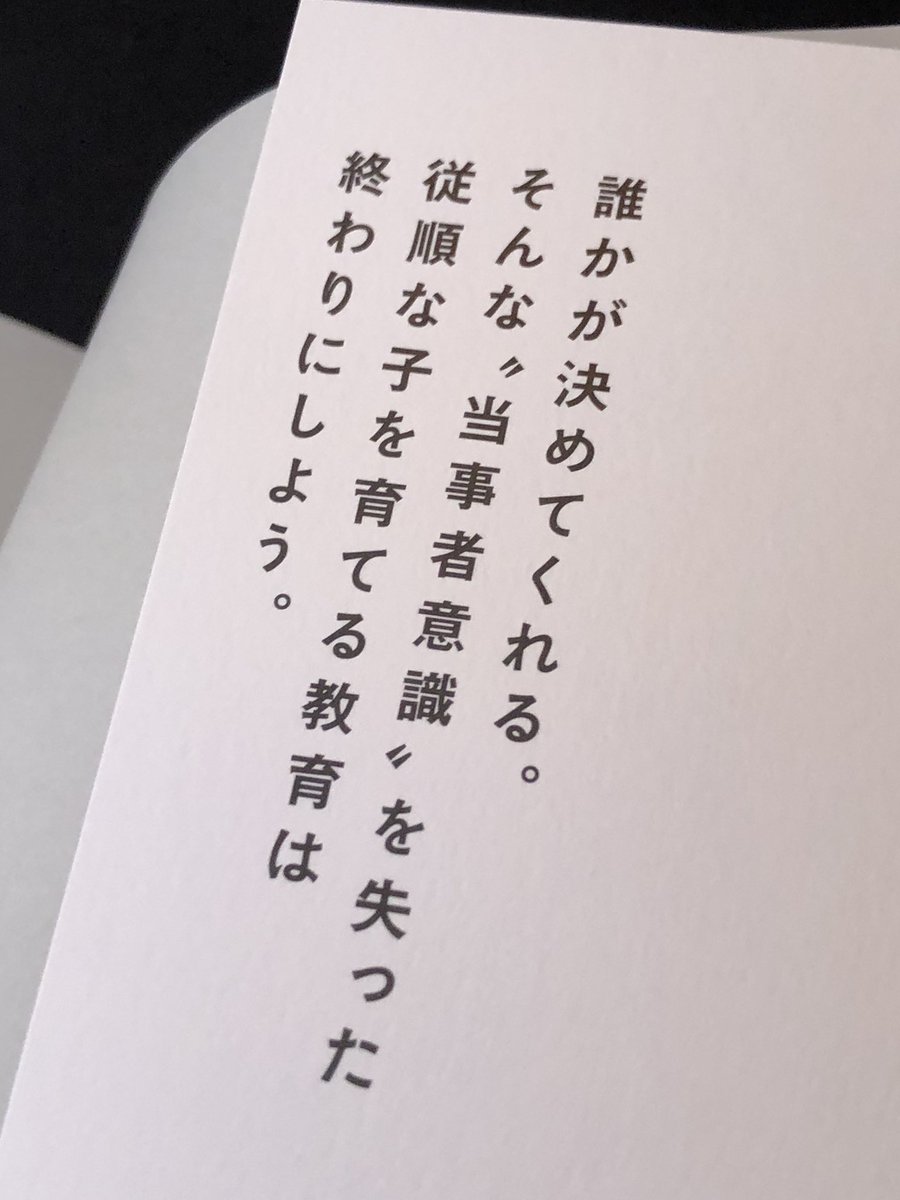 誰かが決めてくれる。
そんな〝当事者意識〟を失った
従順な子を育てる教育は
終わりにしよう。